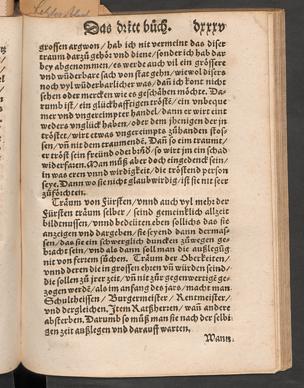 Das dritte bůch. dxxxv
grossen argwon / hab ich nit vermeint das diser
traum darzů gehör vnd diene / sonder ich hab dar
bey abgenommen / es werde auch vil ein grössere
vnd wůnderbare sach von stat gehn / wiewol disers
noch vyl wůnderbarlicher was / dañ ich kont nicht
sehen oder mercken wie es geschähen möchte. Da=
rumb ist / ein glückhafftigen tröste / ein vnbeque
mer vnd vngereimpter handel / dann er wirt ent
weders vnglück haben / oder dem jhenigen der jn
tröstet / wirt etwas vngereimpts zůhanden stos=
sen / vñ nit dem traumenden. Dañ so eim traume /
er tröst sein freünd oder brůd / so wirt jm ein schad
widerfaren. Man můß aber doch eingedenck sein /
in was eren vnnd wirdigkeit / die tröstend person
seye. Dann wo sie nicht glaubwirdig / ist sie nit seer
zůförchten.
Träum von Fürsten / vnnd auch vyl mehr der
Fürsten träum selber / seind gemeinklich allzeit
bildtnussen / vnnd bedeüten eben sollichs das sie
anzeigen vnd dargeben / sie seyend dann dermas=
sen / das sie ein schwerglich duncken zůwegen ge=
bracht sein / vnd als dann soll man die außlegūg
nit von fernem sůchen. Träum der Oberkeiten /
vnnd deren die in grossen eheren vñ würden seind /
die sollen zů jrer zeit / vñ nit zůr gegenwertige ge=
zogen werdē / als im anfang des jars / macht man
Schultheissen / Burgermeister / Rentmeister /
vnd dergleichen. Item Ratßherren / wañ andere
absterben. Darumb so můß man sie nach der selbi
gen zeit außlegen vnd darauff warten.
Wann